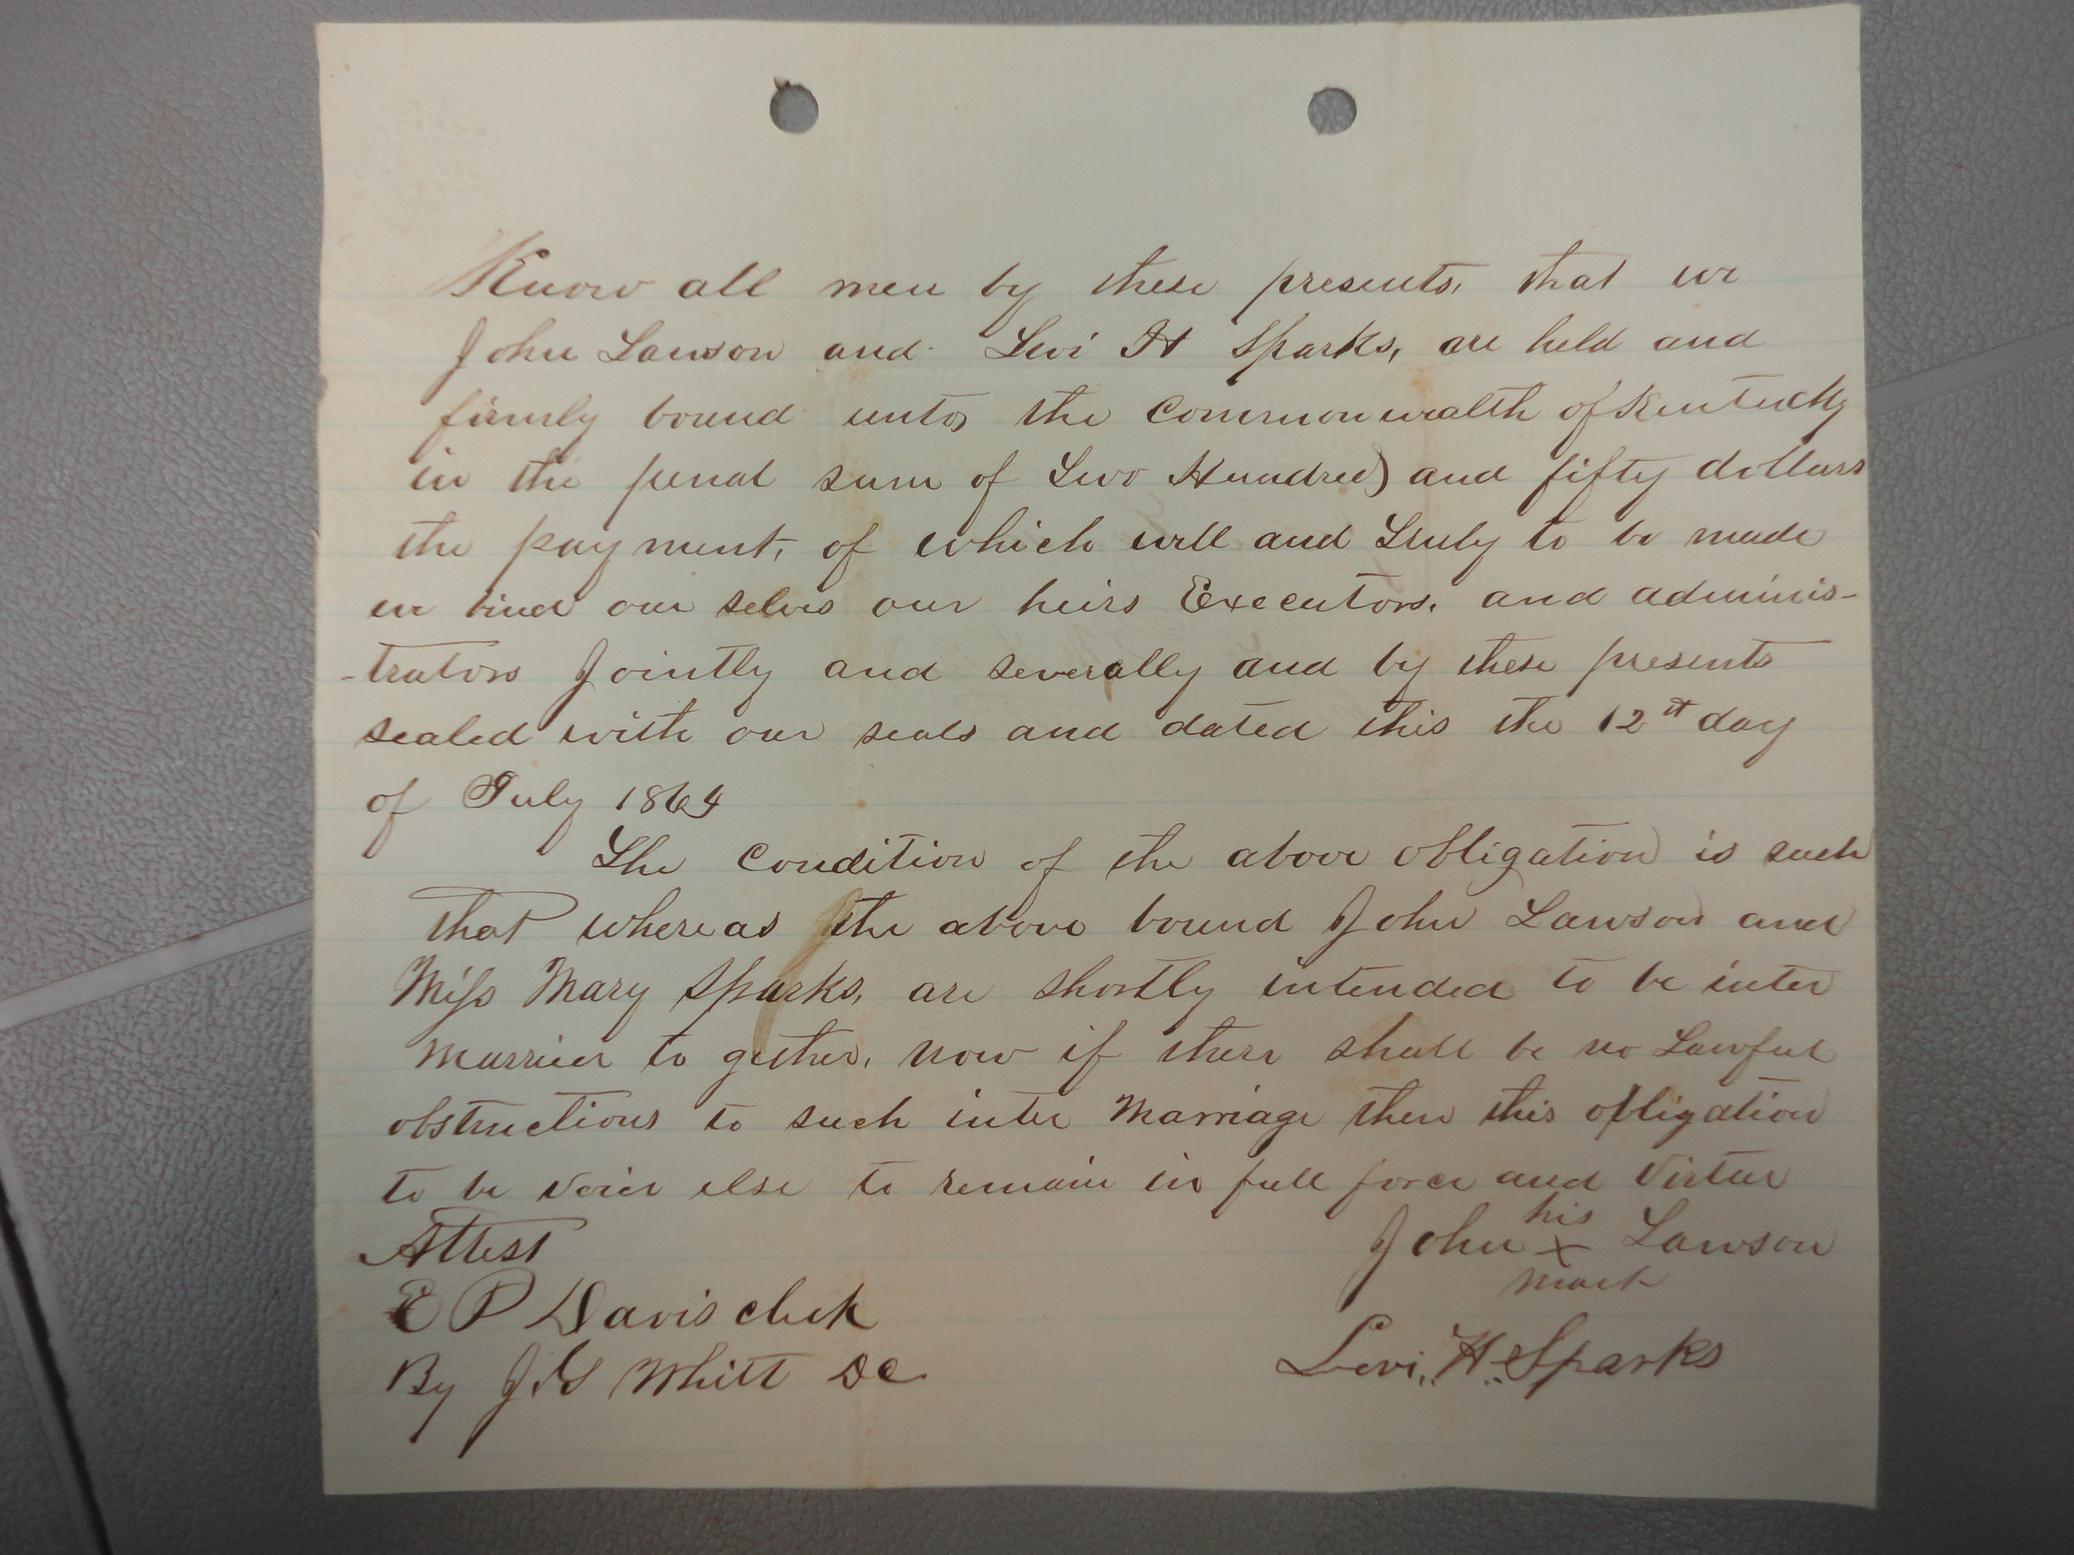 Know all men by these presents, that we
John Lawson and Levi H Sparks, are held and
firmly bound unto the Commonwealth of Kentucky
in the penal sum of Two Hundred and fifty dollars
the payment, of which will and truly to be made
we bind our selves our heirs Executors, and adminis-
-trators Jointly and severally and by these presents
sealed with our seals and dated this the 12th day
of July 1864
The Condition of the above obligation is such
that whereas the above bound John Lawson and
Miss Mary Sparks, are shortly intended to be inter
married to gether, now if there shall be no Lawful
obstructions to such inter Marriage then this obligation
to be void else to remain in full force and Virtue
Attest
John his x mark Lawson
E P Davis clerk
By Whitt DC
Levi, H. Sparks